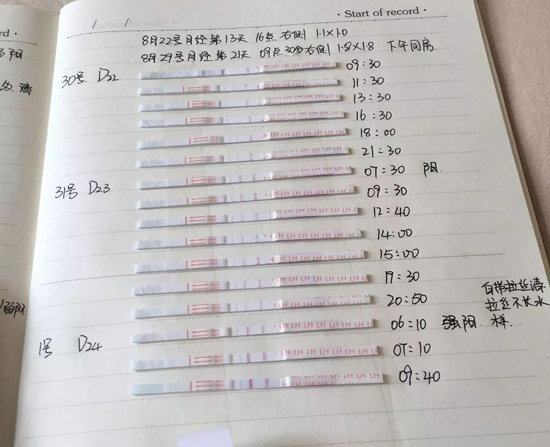 · Start of record ·
8月22号月经第13天 16点 右侧 1.1×1.0
8月29号月经第21天 09点30分右侧 1.8×1.8 下午同房
30号 D22 09:30
11:30
13:30
16:30
18:00
21:30
31号 D23 07:30 阴
09:30
12:40
14:00
15:00
17:30
白带拉丝清
20:50 拉丝不长水
06:10 强阳 样
1号 D24 07:10
09:40
LH LH LH LH LH LH LH